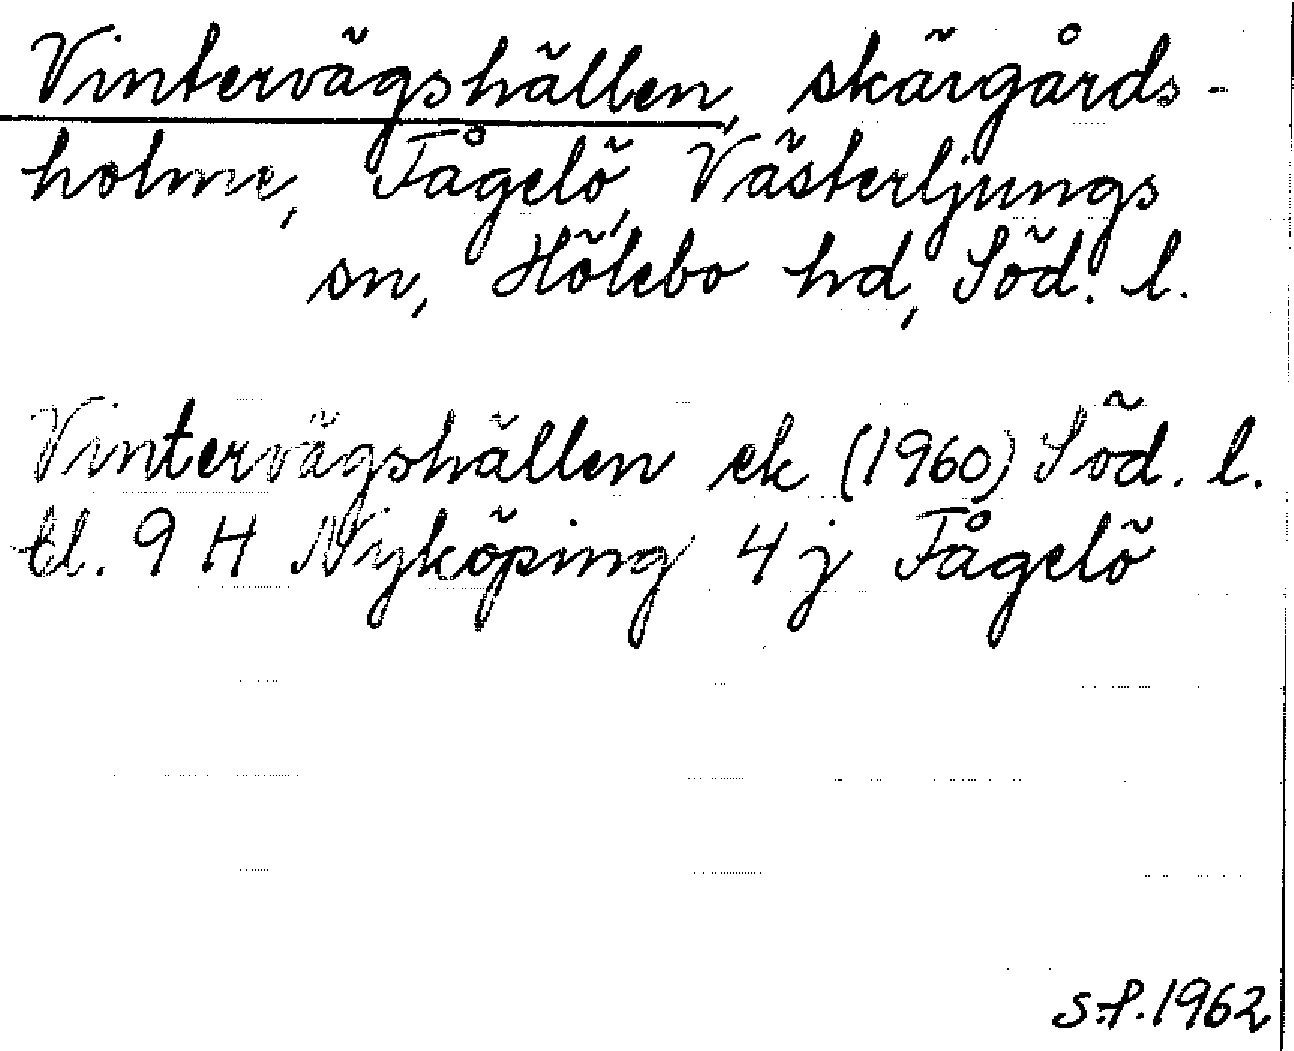 Vintervägshällen, skärgårds-
holme, Fågelö, Västerljungs
sn, Hölebo hd, Söd. l.
Vintervägshällen ek (1960) Söd. l.
tl. 9 H Nyköping 4 j Fågelö
S.P. 1962